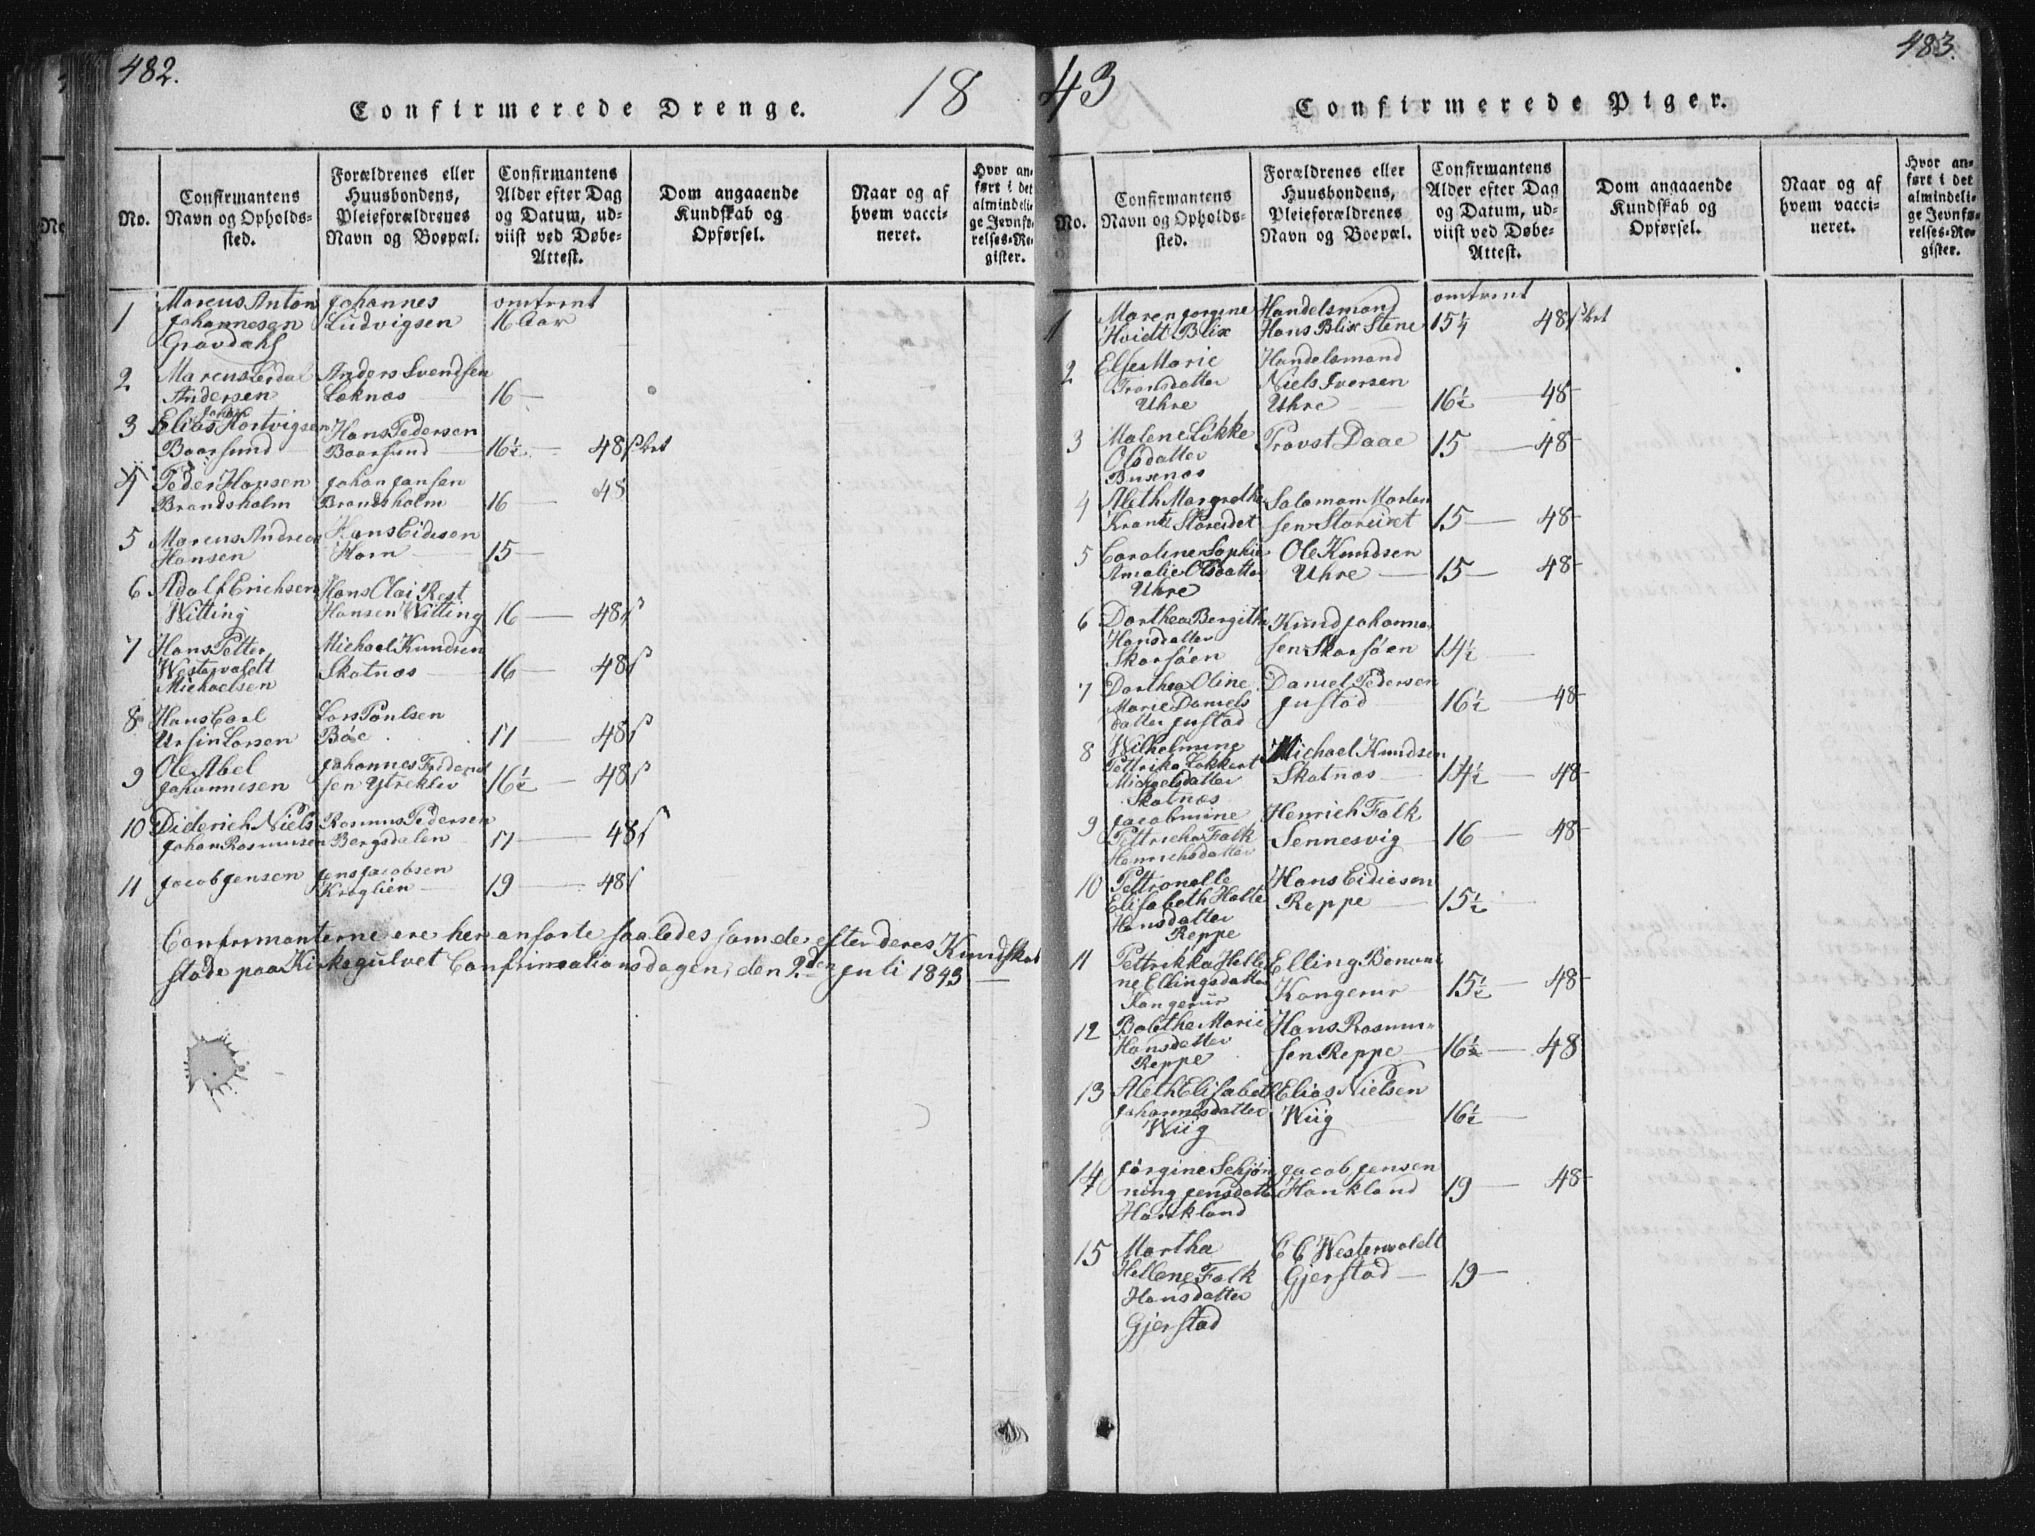 482.
18
Confirmerede Drenge.
No.
Confirmantens
Navn og Opholds-
sted.
Forældrenes eller
Huusbondens,
Pleieforældrenes
Navn og Boepæl.
Confirmantens
Alder efter Dag
og Datum, ud-
viist ved Døbe-
Attest.
Dom angaaende
Kundskab og
Opførsel.
Naar og af
hvem vacci-
neret.
Hvor an-
ført i det
almindeli-
ge Jevnfø-
relses-Re-
gister.
1
Marcus Anton
Johannesen
Gravdahl
Johannes
Ludvigsen
omtrent
16 Aar
2
Marcus
Andersen
Anders Svendsen
Leknæs
16 —
3
Elias Hartvigsen
Baarsund
Hans Pedersen
Baarsund
16½ — 48
4
Peder Hansen
Brandsholm
Johan Jansen
Brandsholm
16 — 48
5
Marcus Andreas
Hansen
Hans Eidesen
Horn
15 —
6
Adolf Erichsen
Witting
Hans Olai Rest
Hansen Witting
16 — 48
7
Hans Petter
Westervaldt
Michaelsen
Michael Knudsen
Skatnæs
16 — 48
8
Hans Carl
Ursin Larsen
Lars Poulsen
Böe
17 — 48
9
Ole Abel
Johannesen
Johannes Frideric
sen Ytreklev
16½ — 48
10
Diderich Niels
Johan Rasmusen
Rasmus Pedersen
Bergsdalen
17 — 48
11
Jacob Jensen
Jens Jacobsen
Kroglien
19 — 48
Confirmanterne ere her anførte saaledes som de efter deres Kundskab
stode paa Kirkegulvet Confirmationsdagen, den 2den Juli 1843 —
43
483.
Confirmerede Piger.
No.
Confirmantens
Navn og Opholds-
sted.
Forældrenes eller
Huusbondens,
Pleieforældrenes
Navn og Boepæl.
Confirmantens
Alder efter Dag
og Datum, ud-
viist ved Døbe-
Attest.
Dom angaaende
Kundskab og
Opførsel.
Naar og af
hvem vacci-
neret.
Hvor an-
ført i det
almindeli-
ge Jevnfø-
relses-Re-
gister.
1
Maren Jorgine
Hvidt Blix
Handelsmand
Hans Blix Stene
omtrent
15¼ 48
2
Else Marie
Iversdatter
Uhre
Handelsmand
Niels Iversen
Uhre
16½ — 48
3
Malene Lökke
Olsdatter
Buxnæs
Provst Daae
15 — 48
4
Aleth Margrethe
Krantz Storeidet
Salamon Morten
sen Storeidet
15 — 48
5
Caroline Sophie
Amalie Olsdatter
Uhre
Ole Knudsen
Uhre
15 — 48
6
Dorthea Bergithe
Hansdatter
Skarsöen
Knud Johanne
sen Skarsöen
14½ —
7
Dorthea Oline
Marie Daniels
datter Justad
Daniel Pedersen
Justad
16½ — 48
8
Wilhelmine
Pettrike Lokkert
Michelsdatter
Skatnæs
Michael Knudsen
Skatnæs
14½ — 48
9
Jacobmine
Pettricha Falk
Henrichsdatter
Henrich Falk
Sennesvig
16 — 48
10
Pettronelle
Elisabeth Holte
Hansdatter
Reppe
Hans Eidiesen
Reppe
15½
11
Pettrikka Helle
ne Ellingsdatter
Kangerur
Elling
Kangerur
15½ — 48
12
Bolethe Marie
Hansdatter
Reppe
Hans Rasmu-
sen Reppe
16½ — 48
13
Aleth Elisabeth
Johannesdatter
Wiig
Elias Nielsen
Wiig
16½
14
Jörgine Schjön
ning Jensdatter
Haukland
Jacob Jensen
Haukland
19 — 48
15
Martha
Hellene Falk
Hansdatter
Gjerstad
C C Westerwaldt
Gjerstad
19 —